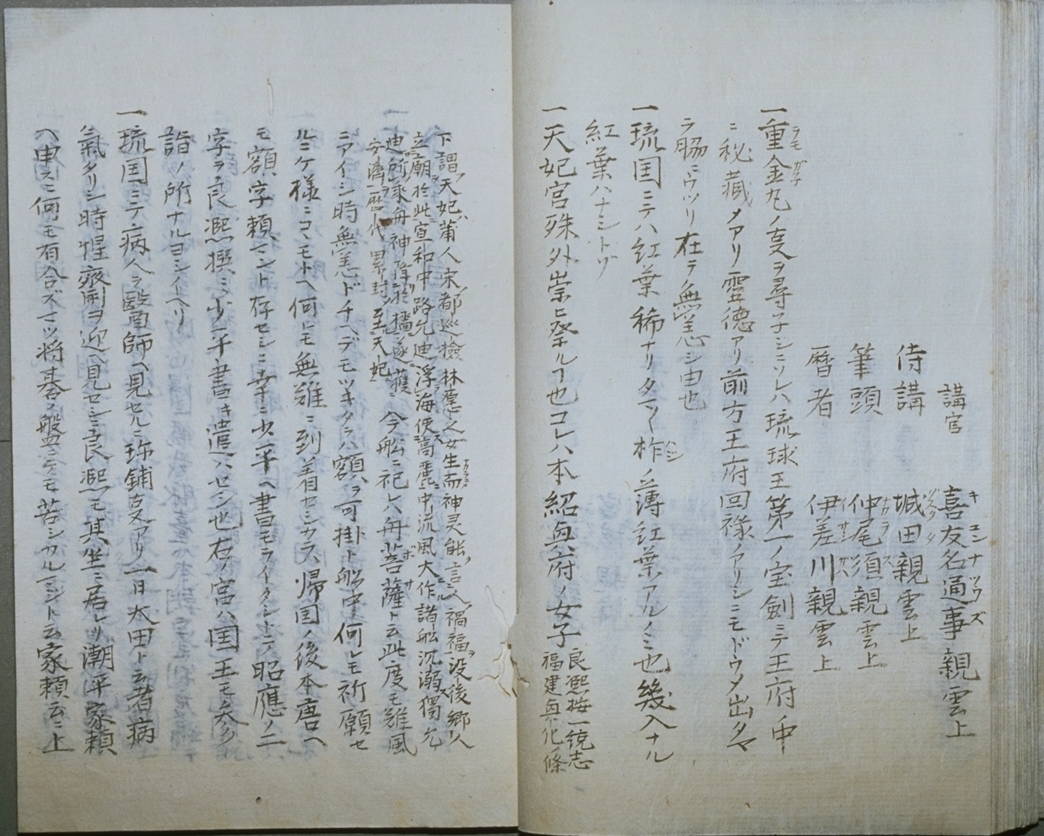 講官　喜友名通事親雲上
侍講　城田親雲上
筆頭　仲尾須親雲上
暦者　伊差川親雲上
一重金丸ノ事ヲ尋ヲナシニソレハ琉球王第一ノ宝剣ニテ王府ノ中
ニ秘蔵メアリ霊徳アリ前方王府回禄ノアリシニモドウメ出タヤ
ラ脇ニウツリ在テ無恙シ由也
一琉国ニテハ紅葉稀ナリタマ〱柞ノ薄紅葉アルノミ也幾入ナル
紅葉ハナシトゾ
一天妃宮殊外崇ヒ祭ルヿ也コレハ本紹興府ノ女子
良熙按一統志
福建興化條
下謂天妃莆人宋都巡檢林愿之女生而神灵能言人禍福没後郷人
立廟於此宣和中路允迪浮海使高麗中流風大作諸船沉溺獨允
迪所乗舟神降於檣遂獲
安濟歴代累封至天妃
今船ニ祀レハ舟菩薩ト云此度モ難風
ニアイシ時無恙ドチヘデモツキタラハ額ヲ可掛ト船中何レモ祈願セ
ルニケ様ニコモトヘ何モ無難ニ到着セシカハ帰国ノ後本唐ヘ
モ額字頼マント存セシニ幸ニ少年ヘ書モライタシトテ昭應ノ二
字ヲ良熙撰ミ少年書キ遣ハセシ也右ノ宮ハ国王モ参
詣ノ所ナルヨシイヘリ
一琉国ニテ病人ラ醫師ヘ見セルニ珎鋪事アリ一日太田ト云者病
氣タリシ時惺齋ヲ迎ヘ見セシニ良熙モ其坐ニ居レリ潮平家頼
ヘ申スニ何モ有合ズマツ将碁ノ盤ニテモ苦シカルマジト云家頼云上